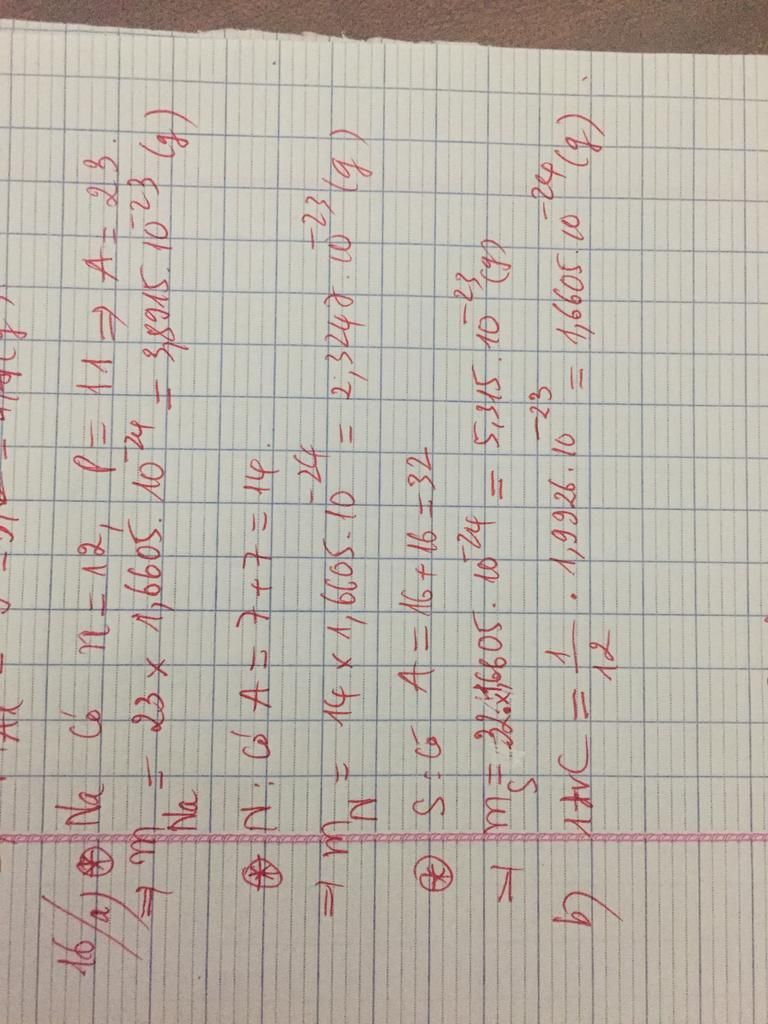 16/a) ⊛ Na Có n = 12, P = 11 ⇒ A = 23.
⇒ m_Na = 23 x 1,6605.10^-24 = 3,8915.10^-23 (g)
⊛ N: Có A = 7 + 7 = 14.
⇒ m_N = 14 x 1,6605.10^-24 = 2,3247.10^-23 (g)
⊛ S: Có A = 16 + 16 = 32
⇒ m_S = 32.1,6605.10^-24 = 5,315.10^-23 (g)
b) 1đvC = 1/12 . 1,9926.10^-23 = 1,6605.10^-24 (g).